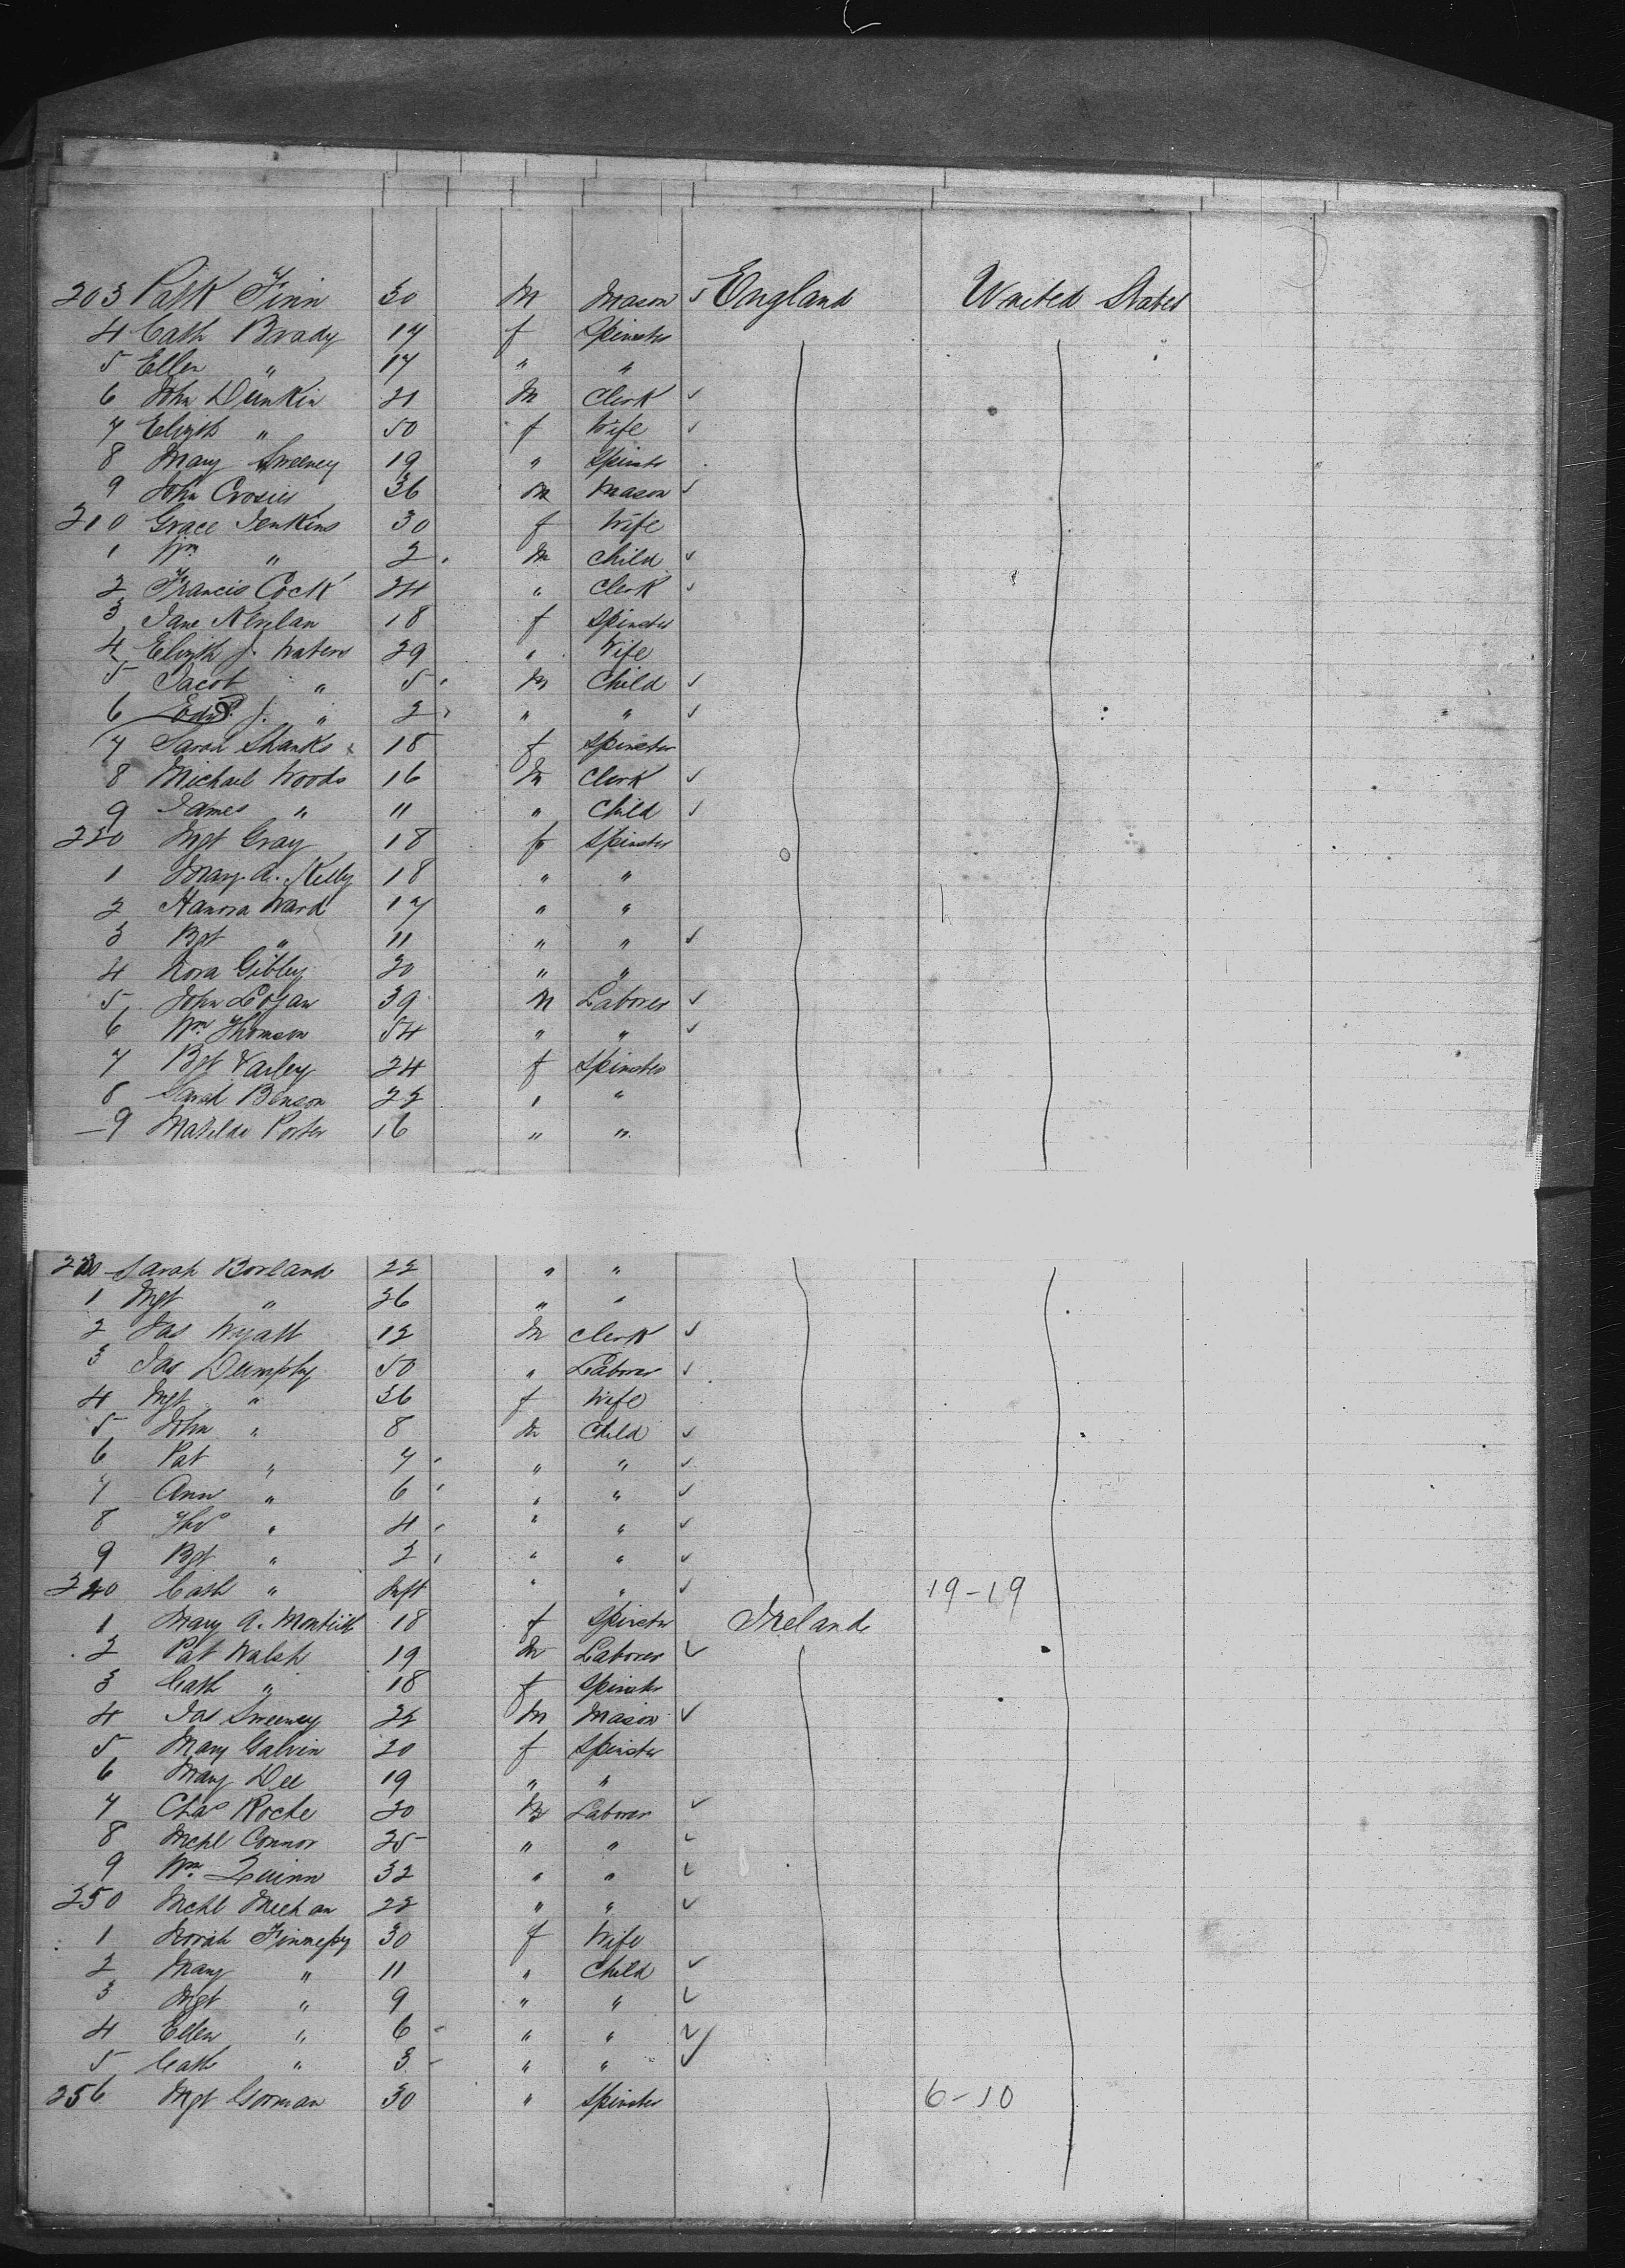 203 Patk Finn 30 M Mason ✓ England United States
4 Cath Brady 17 f Spinster
5 Ellen " 17 " "
6 John Dunkin 21 M Clerk ✓
7 Elizth " 50 f Wife ✓
8 Mary Sweeney 19 " Spinster
9 John Crosier 36 M Mason ✓
210 Grace Jenkins 30 f Wife
1 Wm " 2 M Child ✓
2 Francis Cock 24 " Clerk ✓
3 Jane 18 f Spinster
4 Elizth J. Waters 29 " Wife
5 Jacob " 5 M Child ✓
6 Edwd. J. " 2 " " ✓
7 Sarah Shanks 18 f Spinster
8 Michael Woods 16 M Clerk ✓
9 James " 11 " Child ✓
220 Mgt Gray 18 f Spinster
1 Mary A. Kelly 18 " "
2 Hanora Ward 17 " "
3 Bgt " 11 " " ✓
4 Nora Gibley 20 " "
5 John Logan 39 M Laborer ✓
6 Wm Thomson 54 " " ✓
7 Bgt Varley 24 f Spinster
8 Sarah Benson 22 " "
9 Matilda Porter 16 " "
230 Sarah Borland 22 " "
1 Mgt " 26 " "
2 Jas Wyatt 12 M Clerk ✓
3 Jas Dumphy 50 " Laborer ✓
4 Mgt " 36 f Wife
5 John " 8 M Child ✓
6 Pat " 7 " " ✓
7 Ann " 6 " " ✓
8 Thos " 4 " " ✓
9 Bgt " 2 " " ✓
240 Cath " Inft " " ✓ 19-19
1 Mary A. 18 f Spinster Ireland
2 Pat Walsh 19 M Laborer ✓
3 Cath " 18 f Spinster
4 Jas Sweeney 22 M Mason ✓
5 Mary Galvin 20 f Spinster
6 Mary Dee 19 " "
7 Chas Roche 20 M Laborer ✓
8 Mchl Connor 25 " " ✓
9 Wm Quinn 32 " " ✓
250 Mchl Meehan 22 " " ✓
1 Norah Finnessy 30 f Wife
2 Mary " 11 " Child ✓
3 Mgt " 9 " " ✓
4 Ellen " 6 " " ✓
5 Cath " 3 " " ✓
256 Mgt Gorman 30 " Spinster 6-10